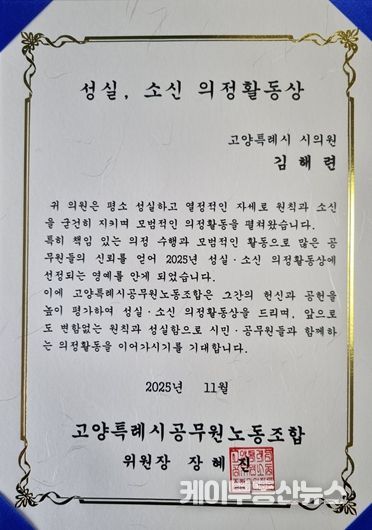 성실, 소신 의정활동상
고양특례시 시의원
김 해 련
귀 의원은 평소 성실하고 열정적인 자세로 원칙과 소신
을 굳건히 지키며 모범적인 의정활동을 펼쳐왔습니다.
특히 책임 있는 의정 수행과 모범적인 활동으로 많은 공
무원들의 신뢰를 얻어 2025년 성실·소신 의정활동상에
선정되는 영예를 안게 되었습니다.
이에 고양특례시공무원노동조합은 그간의 헌신과 공헌을
높이 평가하여 성실·소신 의정활동상을 드리며, 앞으로
도 변함없는 원칙과 성실함으로 시민·공무원들과 함께하
는 의정활동을 이어가시기를 기대합니다.
2025년 11월
고양특례시공무원노동조합
위원장 장 혜 진
케이부동산뉴스